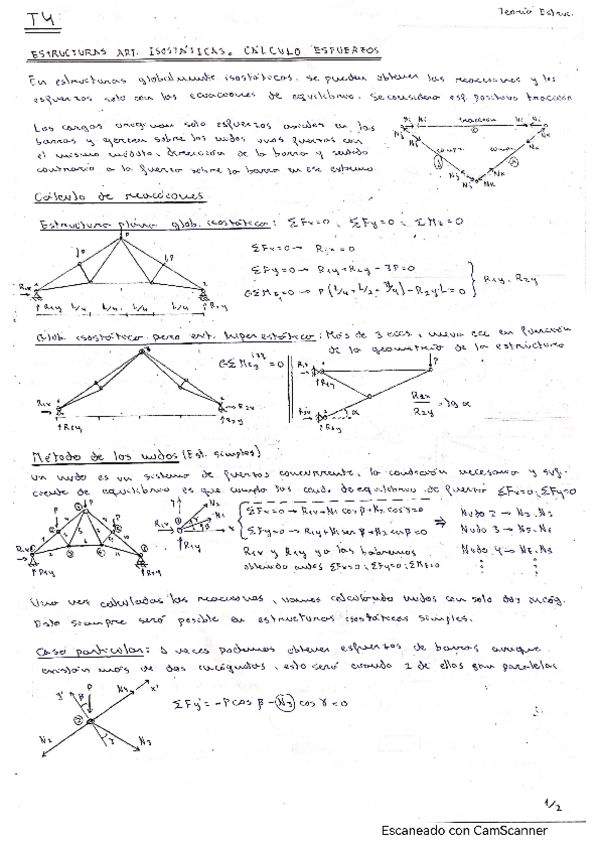 T4
Teoría Estruc.
ESTRUCTURAS ART. ISOSTÁTICAS. CÁLCULO ESFUERZOS
En estructuras globalmente isostáticas, se pueden obtener las reacciones y los
esfuerzos solo con las ecuaciones de equilibrio. Se considera esf. positivos tracción
Las cargas originan solo esfuerzos axiales en las
barras y ejercen sobre los nudos unas fuerzas con
el mismo módulo, dirección de la barra y sentido
contrario a la fuerza sobre la barra en ese extremo
tracción
Cálculo de reacciones
Estructura plana glob. isostática: ΣFx=0; ΣFy=0; ΣMz=0
ΣFx=0 → R1x=0
ΣFy=0 → R1y+R2y-3P=0
R1y, R2y
L/4 L/4 L/4 L/4
Glob. isostática pero ext. hiperestática: Más de 3 reac., nueva ecc en función
de la geometría de la estructura
R2x/R2y = tg α
Método de los nudos (Est. simples)
Un nudo es un sistema de fuerzas concurrente, la condición necesaria y suf-
ciente de equilibrio es que cumpla las cond. de equilibrio de fuerza ΣFx=0; ΣFy=0
Nudo 2 →
Nudo 3 →
R1x y R1y ya las habremos
Nudo 4 →
obtenido antes ΣFx=0; ΣFy=0; ΣMz=0
Una vez calculadas las reacciones, vamos calculando nudos con solo dos incóg.
Esto siempre será posible en estructuras isostáticas simples.
Caso particular: A veces podemos obtener esfuerzos de barras aunque
existan más de dos incógnitas, esto será cuando 2 de ellas sean paralelas
ΣFy' = -P cos β - N3 cos γ = 0
1/2
Escaneado con CamScanner